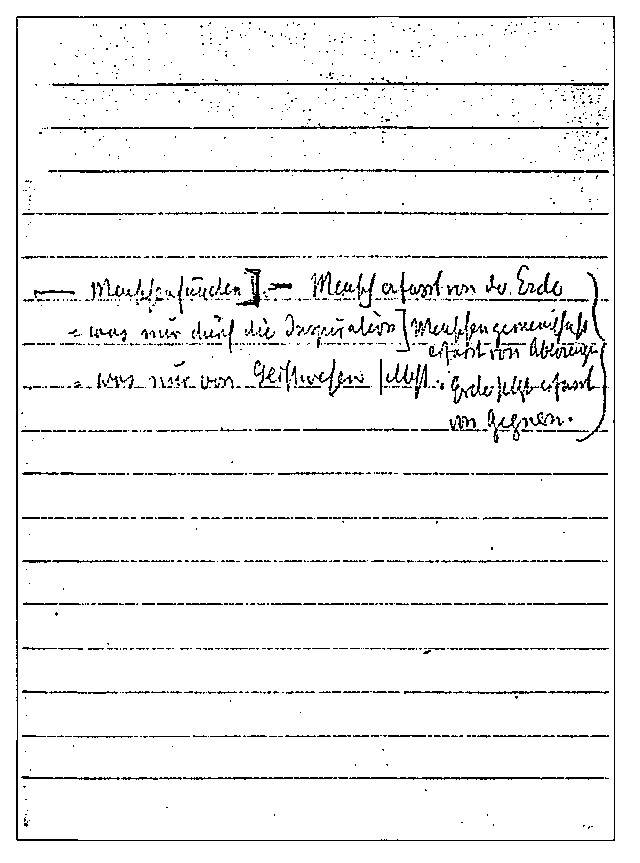 — Menschensünden] — Mensch erfasst von der Erde
= was nur durch die Inspiration] Menschengemeinschaft
erfasst von
= was nur von Geistwesen selbst. Erde selbst erfasst
von Gegnern.